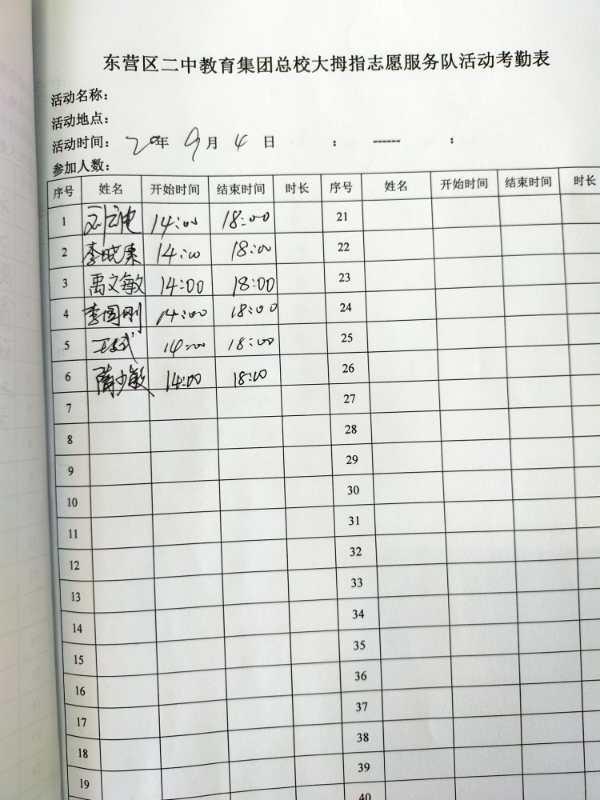 东营区二中教育集团总校大拇指志愿服务队活动考勤表
活动名称：
活动地点：
活动时间： 20年 9月 4日 ： ------ ：
参加人数：
序号 姓名 开始时间 结束时间 时长 序号 姓名 开始时间 结束时间 时长
1 14:00 18:00 21
2 李晓康 14:00 18:00 22
3 禹文敏 14:00 18:00 23
4 李国刚 14:00 18:00 24
5 14:00 18:00 25
6 隋少敏 14:00 18:00 26
7 27
8 28
9 29
10 30
11 31
12 32
13 33
14 34
15 35
16 36
17 37
18 38
19 39
40